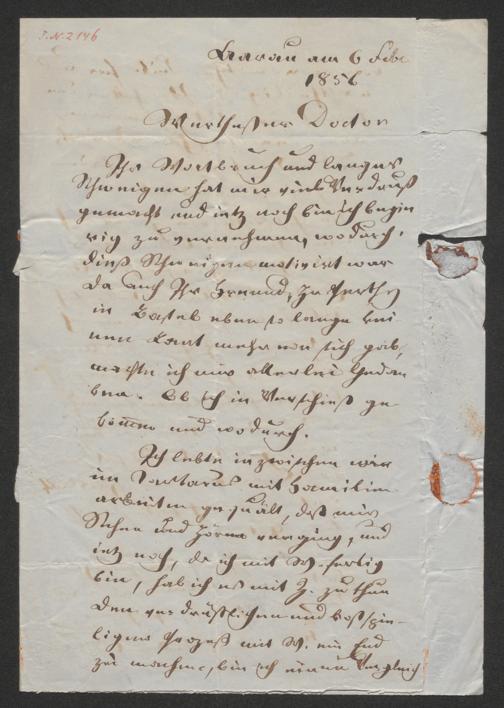 J.N. 2146
Aarau am 6 Febr
1856
Werthester Doctor
Ihr Wortbruch und langes
Schweigen hat mir viel Verdruß
gemacht und jetz noch bin ich begie
rig zu vernehmen, wodurch
dieß Schweigen motivirt war
Da auch Ihr Freund,
in Basel eben so lange kei
nen Laut mehr von sich gab,
machte ich mir allerlei Gedan
ken. Ob ich in Verschieß ge
kommen und wodurch.
Ich lebte inzwischen wie
im Tartarus mit Familien
arbeiten gequält, daß mir
Sehen und Hören verging, und
jetz noch, da ich mit W. fertig
bin, hab ich es mit Z. zu thun
Den verdrüßlichen und kostspie-
ligen Prozeß mit W. ein End
zu machen, bin ich einen Vergleich